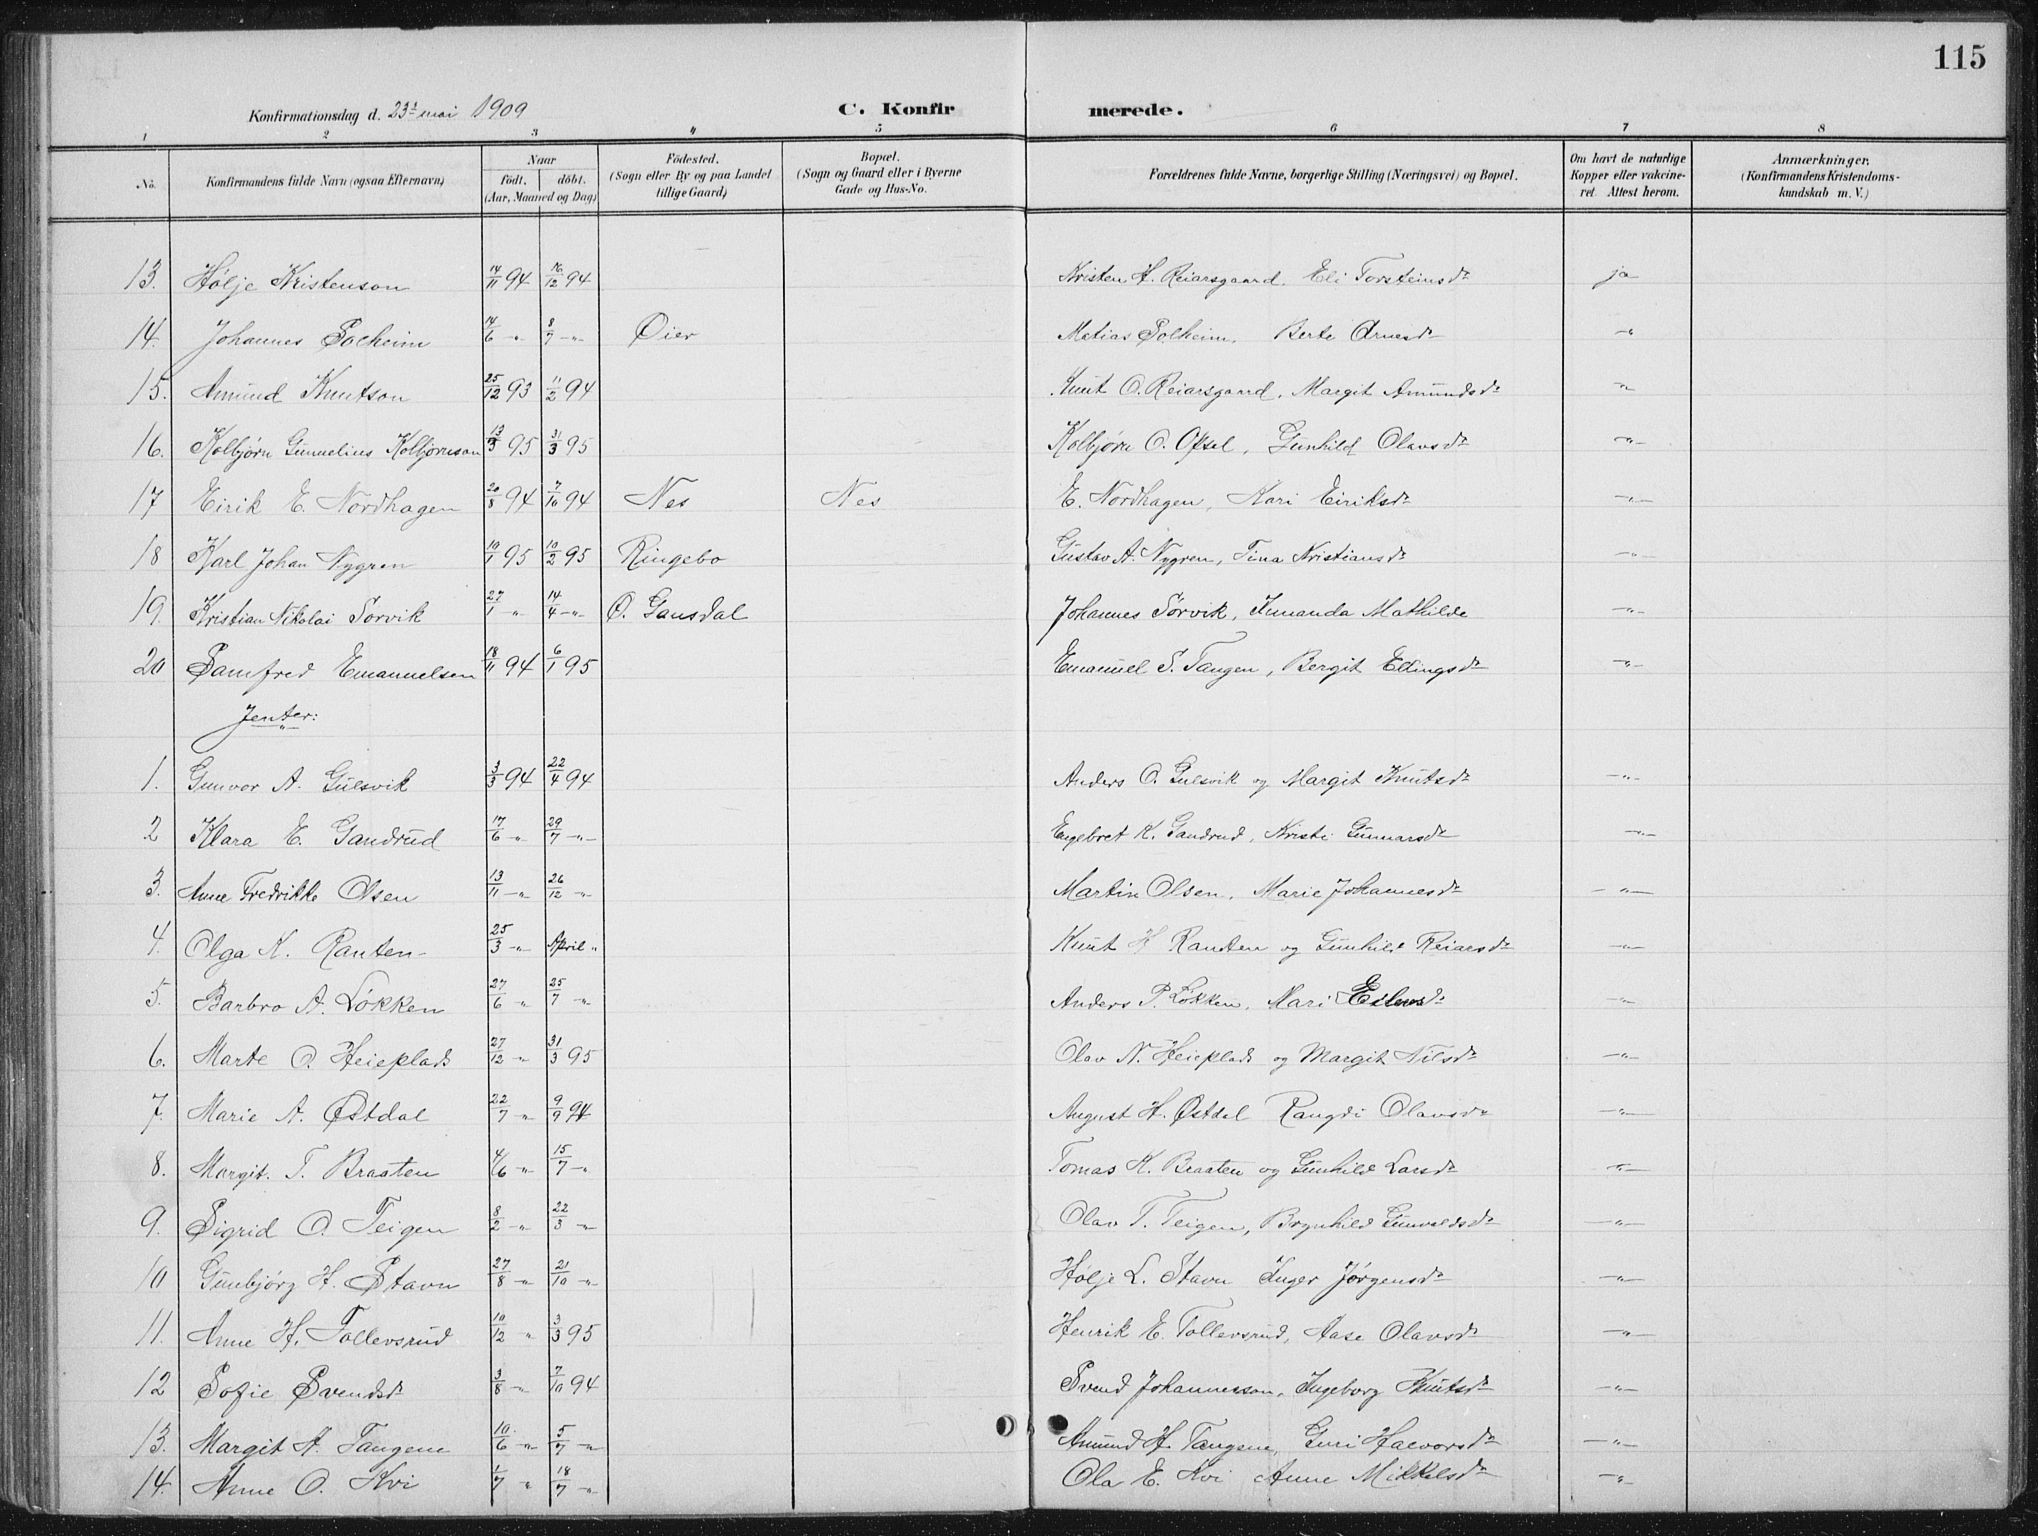 115
Konfirmationsdag d. 23de mai 1909 C. Konfirmerede.
1 2 3 4 5 6 7 8
No. Konfirmandens fulde Navn (ogsaa Efternavn) Naar födt, döbt. (Aar, Maaned og Dag) Födested. (Sogn eller By og paa Landet tillige Gaard) Bopæl. (Sogn og Gaard eller i Byerne Gade og Hus-No. Forældrenes fulde Navne, borgerlige Stilling (Næringsvei) og Bopæl. Om havt de naturlige Kopper eller vakcineret. Attest herom. Anmærkninger. (Konfirmandens Kristendomskundskab m. V.)
13. Hølje Kristenson 14/11 94 16/12 94 Kristen H. Reiarsgaard. Eli Torsteinsdr ja
14. Johannes Solheim 14/6 -"- 8/7 -"- Øier Matias Solheim, Berte Arnesdr -"-
15. Amund Knutson 25/12 93 11/2 94 Knut O. Reiarsgaard, Margit Amundsdr -"-
16. Kolbjørn Gunnelius Kolbjørnson 13/3 95 31/3 95 Kolbjørn O. Opsal, Gunhild Olavsdr -"-
17 Eirik E. Nordhagen 20/8 94 7/10 94 Nes Nes E. Nordhagen, Kari Eiriksdr -"-
18 Karl Johan Nygren 10/1 95 10/2 95 Ringebo Gustav A. Nygren, Tina Kristiansdr -"-
19. Kristian Nikolai Sørvik 27/1 -"- 14/4 -"- Ø. Gausdal Johannes Sørvik, Amanda Mathilde -"-
20 Samfred Emanuelsen 18/11 94 6/1 95 Emanuel S. Tangen, Bergit Ellingsdr -"-
Jenter:
1. Gunvor A. Gulsvik 3/3 94 22/4 94 Anders O. Gulsvik og Margit Knutsdr -"-
2 Klara E. Gandrud 17/6 -"- 29/7 -"- Engebret K. Gandrud, Kristi Gunnarsdr -"-
3. Anne Fredrikke Olsen 13/11 -"- 26/12 -"- Martin Olsen, Marie Johannesdr -"-
4. Olga K. Ranten 25/3 -"- April " Knut H Ranten og Gunhild Reiarsdr -"-
5. Barbro A. Løkken 27/6 " 25/7 -"- Anders P. Løkken, Mari -"-
6. Marte O. Heieplads 27/12 " 31/3 95 Olav N. Heieplads og Margit Nilsdr -"-
7. Marie A. Østdal 22/7 -"- 9/9 94 August H. Østdal Rangdi Olavsdr -"-
8. Margit. T. Braaten 4/6 -"- 15/7 -"- Tomas K. Braaten og Gunhild Larsdr -"-
9. Sigrid O. Teigen 8/2 -"- 22/3 -"- Olav T. Teigen, Brynhild Gunvaldsdr -"-
10 Gunbjørg H. Stavn 27/8 -"- 21/10 -"- Hølje L. Stavn Inger Jørgensdr -"-
11. Anne H. Tollevsrud 10/12 " 3/3 95 Henrik E. Tollevsrud, Aase Olavsdr -"-
12 Sofie Svendsdr 3/8 -"- 7/10 94 Svend Johannesson, Ingeborg Knutsdr -"-
13. Margit A. Tangene 10/6 -"- 5/7 -"- Amund H. Tangene, Guri Halvorsdr -"-
14. Anne O. Kvi 1/7 " 18/7 -"- Ola E. Kvi Anne Mikkelsdr -"-